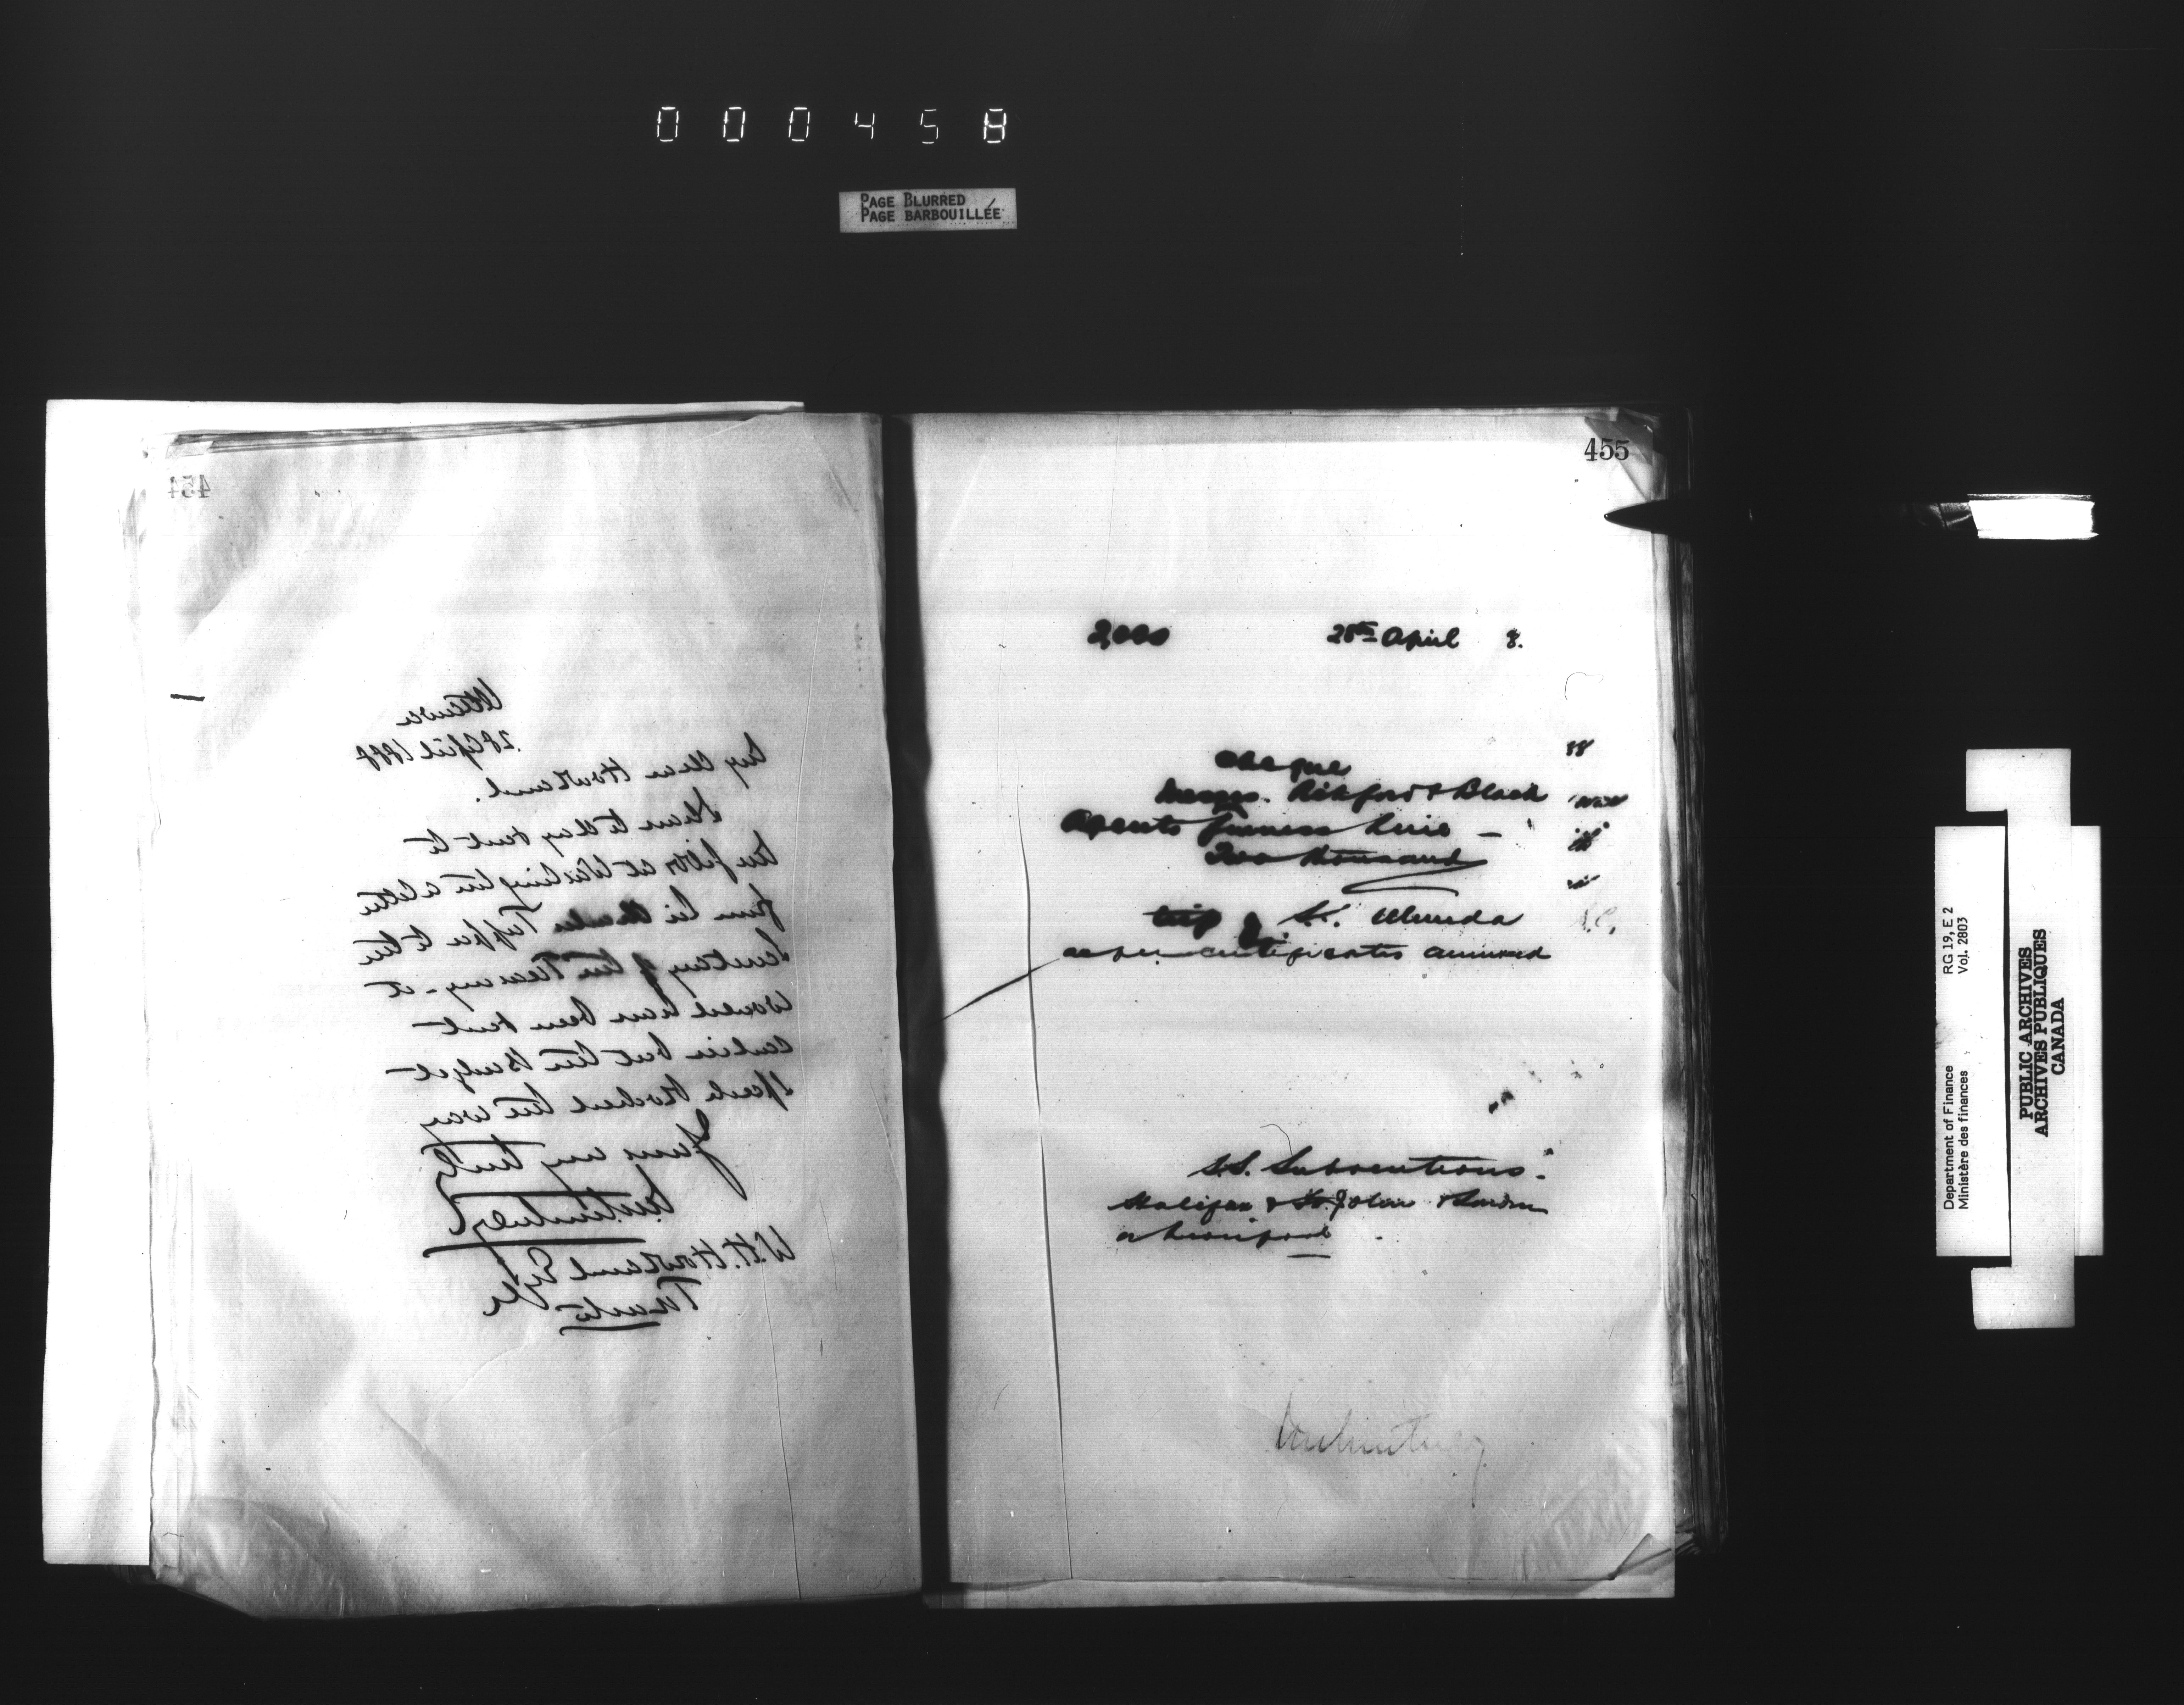 000458
PAGE BLURRED
PAGE BARBOUILLÉE
454
Ottawa
28 April 1888
My dear Howland.
I have to day sent to
the
at Washington a letter
from Sir Charles Tupper to the
Secretary of the Treasury - it
would have been sent
earlier but the Budget
speech blocked the way
Yours very truly
W.H. Howland Esq
Toronto
455
2,000 28th April 8.
cheque
Messrs. Pickford & Black
Agents Furness Line -
Two thousand
trip of S.S. Ulunda
as per certificates annexed
S.S. Subventions.
Halifax & St. John & London
or Liverpool
Department of Finance RG 19, E 2
Ministère des finances Vol. 2803
PUBLIC ARCHIVES
ARCHIVES PUBLIQUES
CANADA